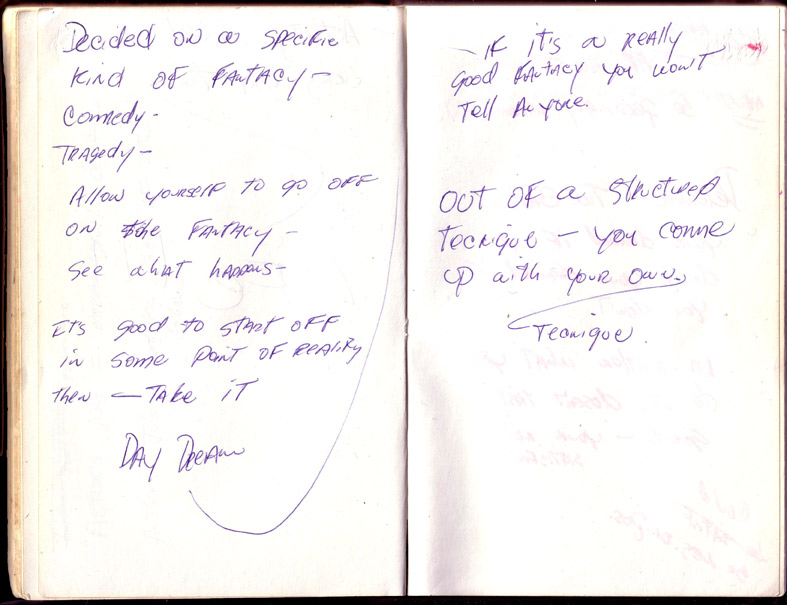 Decided on a specific
Kind of Fantacy —
Comedy -
Tragedy —
Allow yourself to go off
on the Fantacy —
See what happens —
It's good to start off
in some point of reality
then — Take it
Day Dream
— If it's a really
good Fantacy you won't
Tell Anyone.
Out of a structured
Tecnique — you come
up with your own
Tecnique.